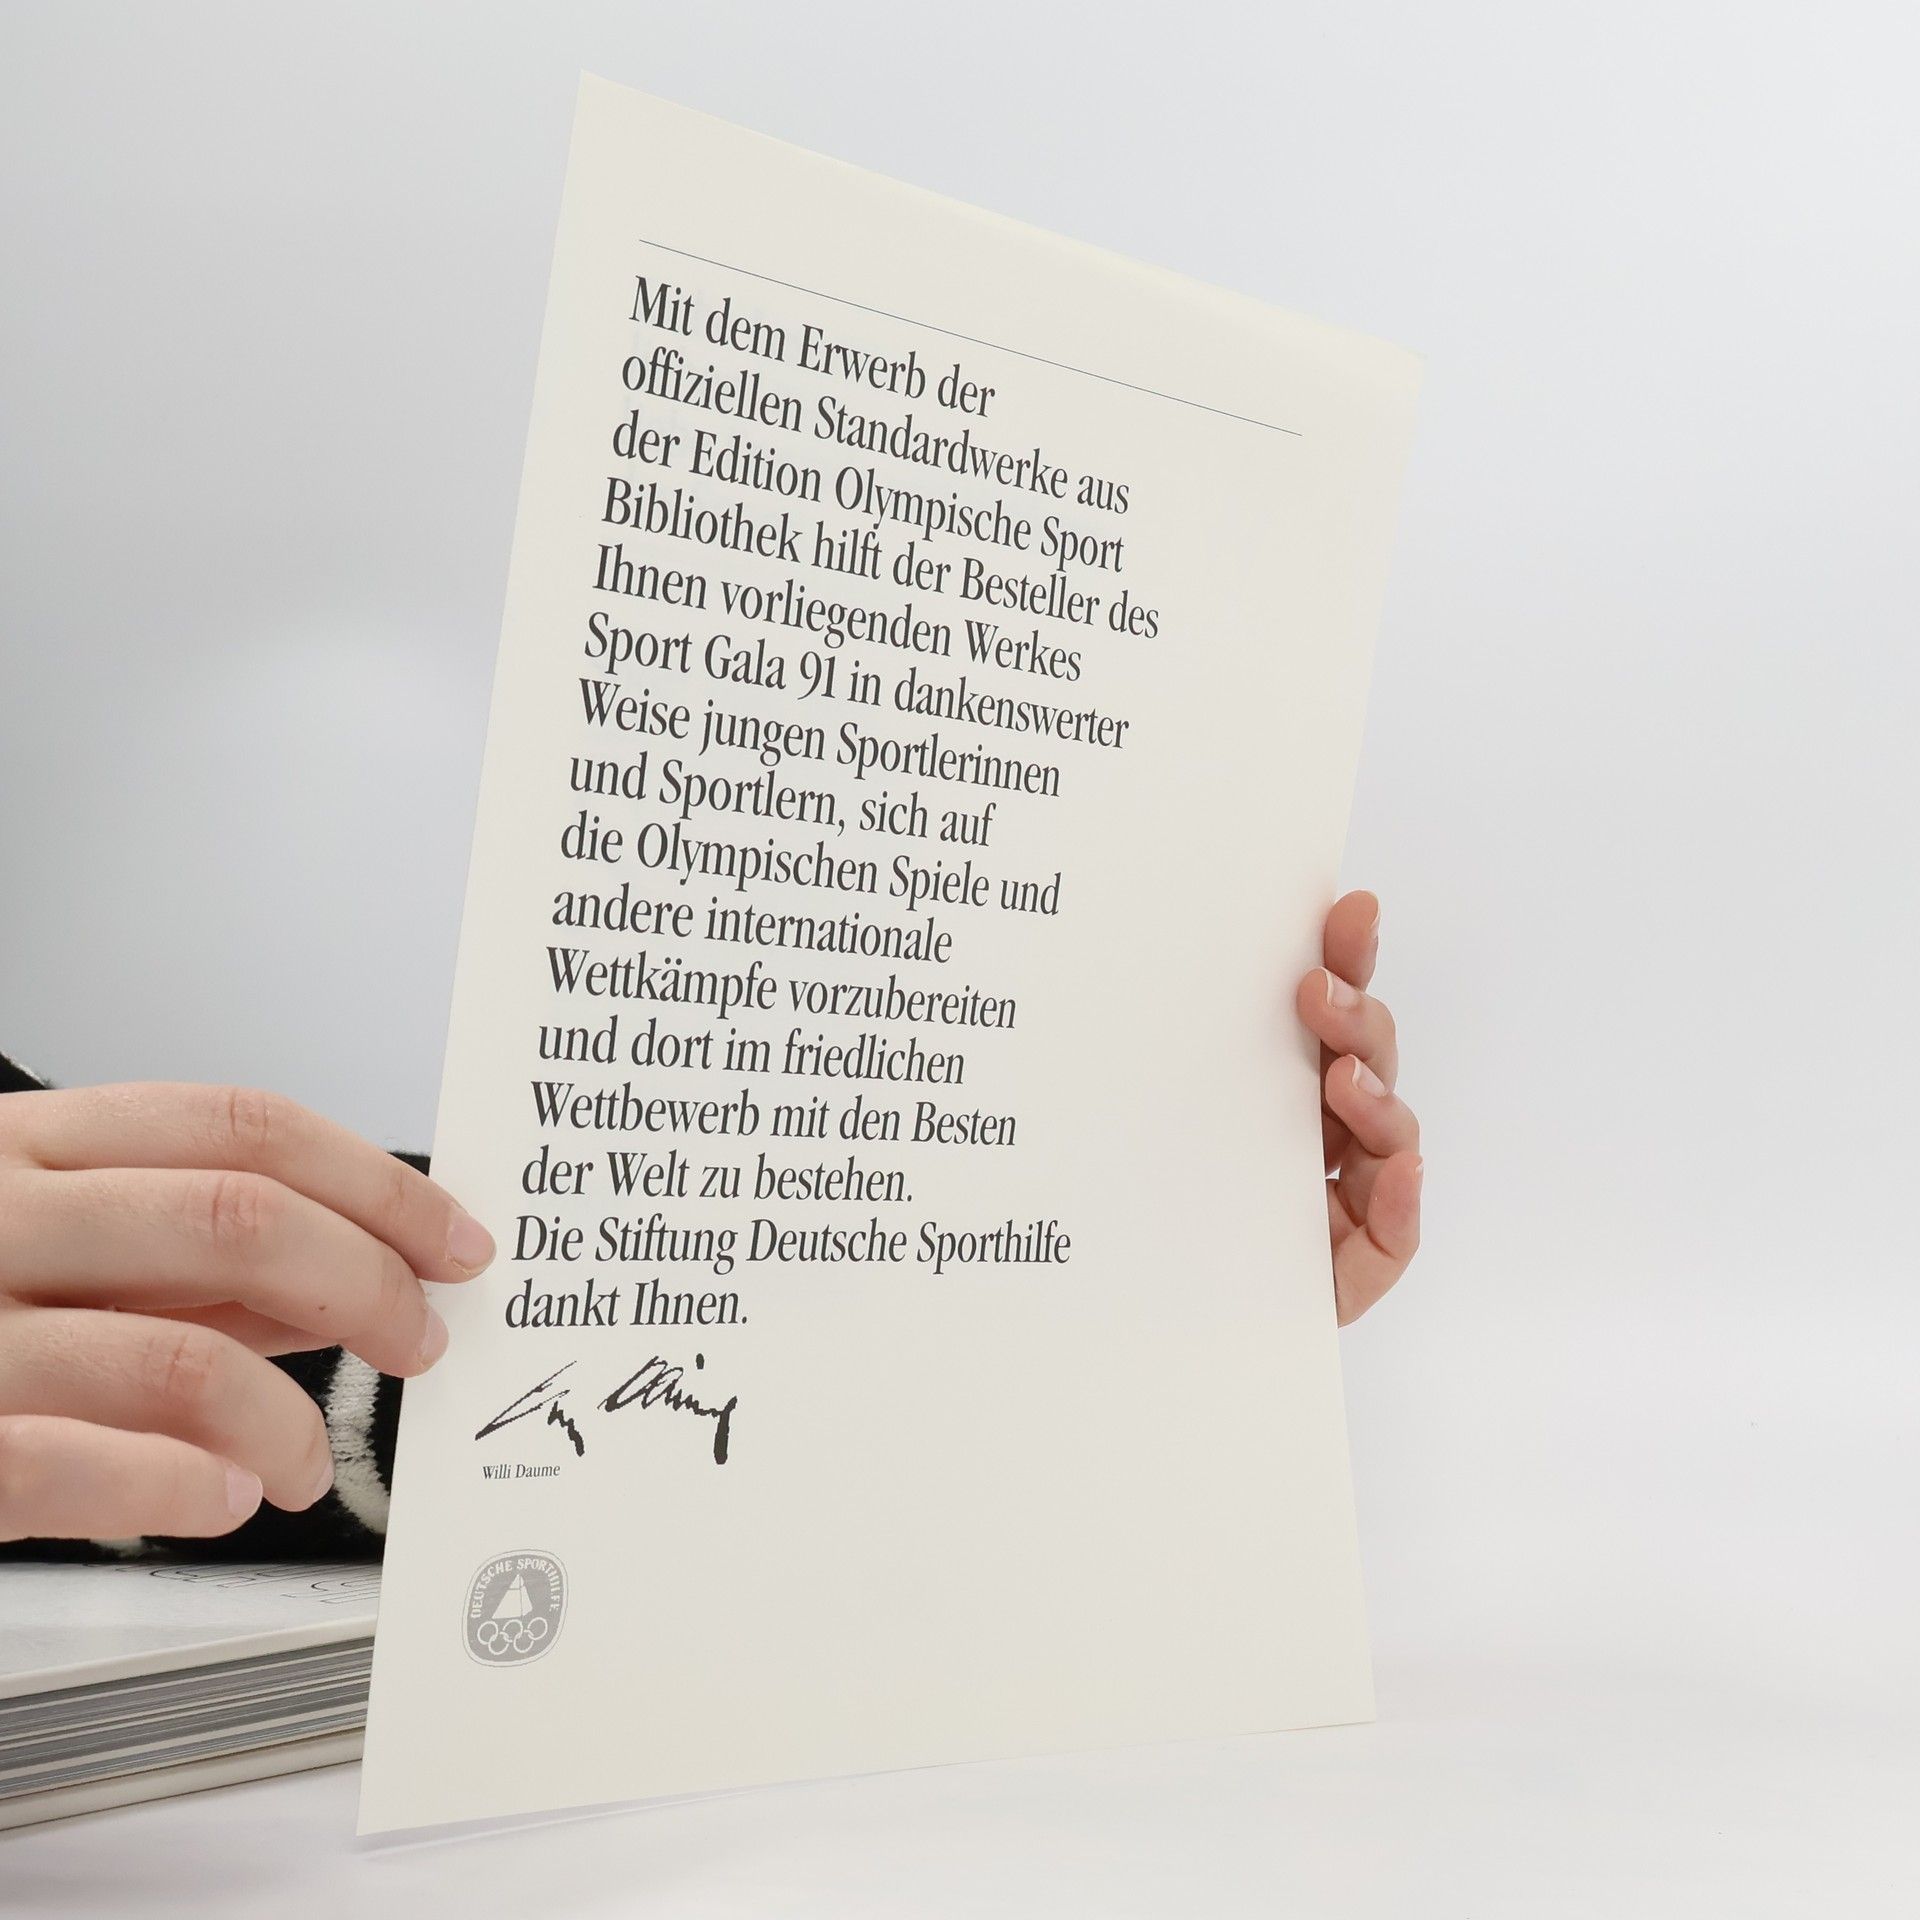 Mit dem Erwerb der
offiziellen Standardwerke aus
der Edition Olympische Sport
Bibliothek hilft der Besteller des
Ihnen vorliegenden Werkes
Sport Gala 91 in dankenswerter
Weise jungen Sportlerinnen
und Sportlern, sich auf
die Olympischen Spiele und
andere internationale
Wettkämpfe vorzubereiten
und dort im friedlichen
Wettbewerb mit den Besten
der Welt zu bestehen.
Die Stiftung Deutsche Sporthilfe
dankt Ihnen.
Willi Daume
DEUTSCHE SPORTHILFE